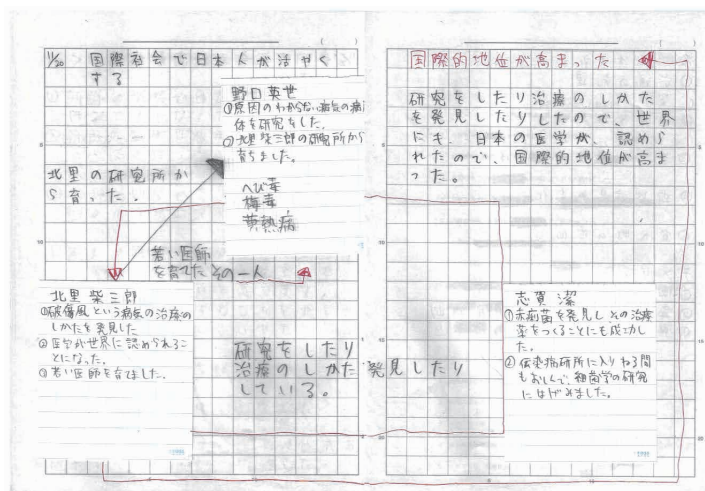 11/20 国際社会で日本人が活やく
する
野口英世
①原因のわからない病気の病
体を研究をした。
②北里柴三郎の研究所から
育ちました。
へび毒
梅毒
黄熱病
北里の研究所か
ら育った。
若い医師
を育てたその一人
北里柴三郎
①破傷風という病気の治療の
しかたを発見した
②医学が世界に認められるこ
とになった。
③若い医師を育てました。
研究をしたり
治療のしかた発見したり
している。
国際的地位が高まった
研究をしたり治療のしかた
を発見したりしたので、世界
にも、日本の医学が、認めら
れたので、国際的地位が高ま
った。
志賀潔
①赤痢菌を発見しその治療
薬をつくることにも成功し
た。
②伝染病研究所に入りねる間
もおしんで、細菌学の研究
にはげみました。